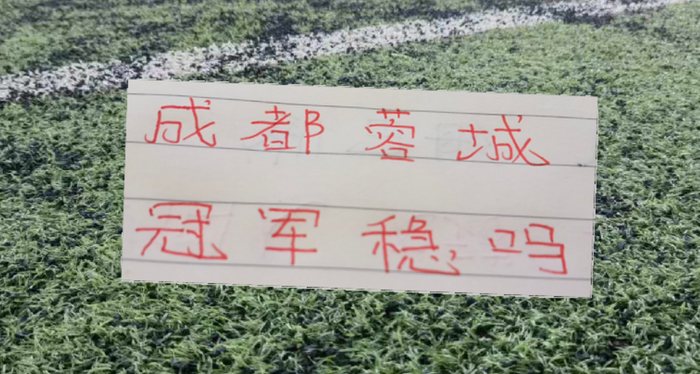 成都蓉城
冠军稳吗